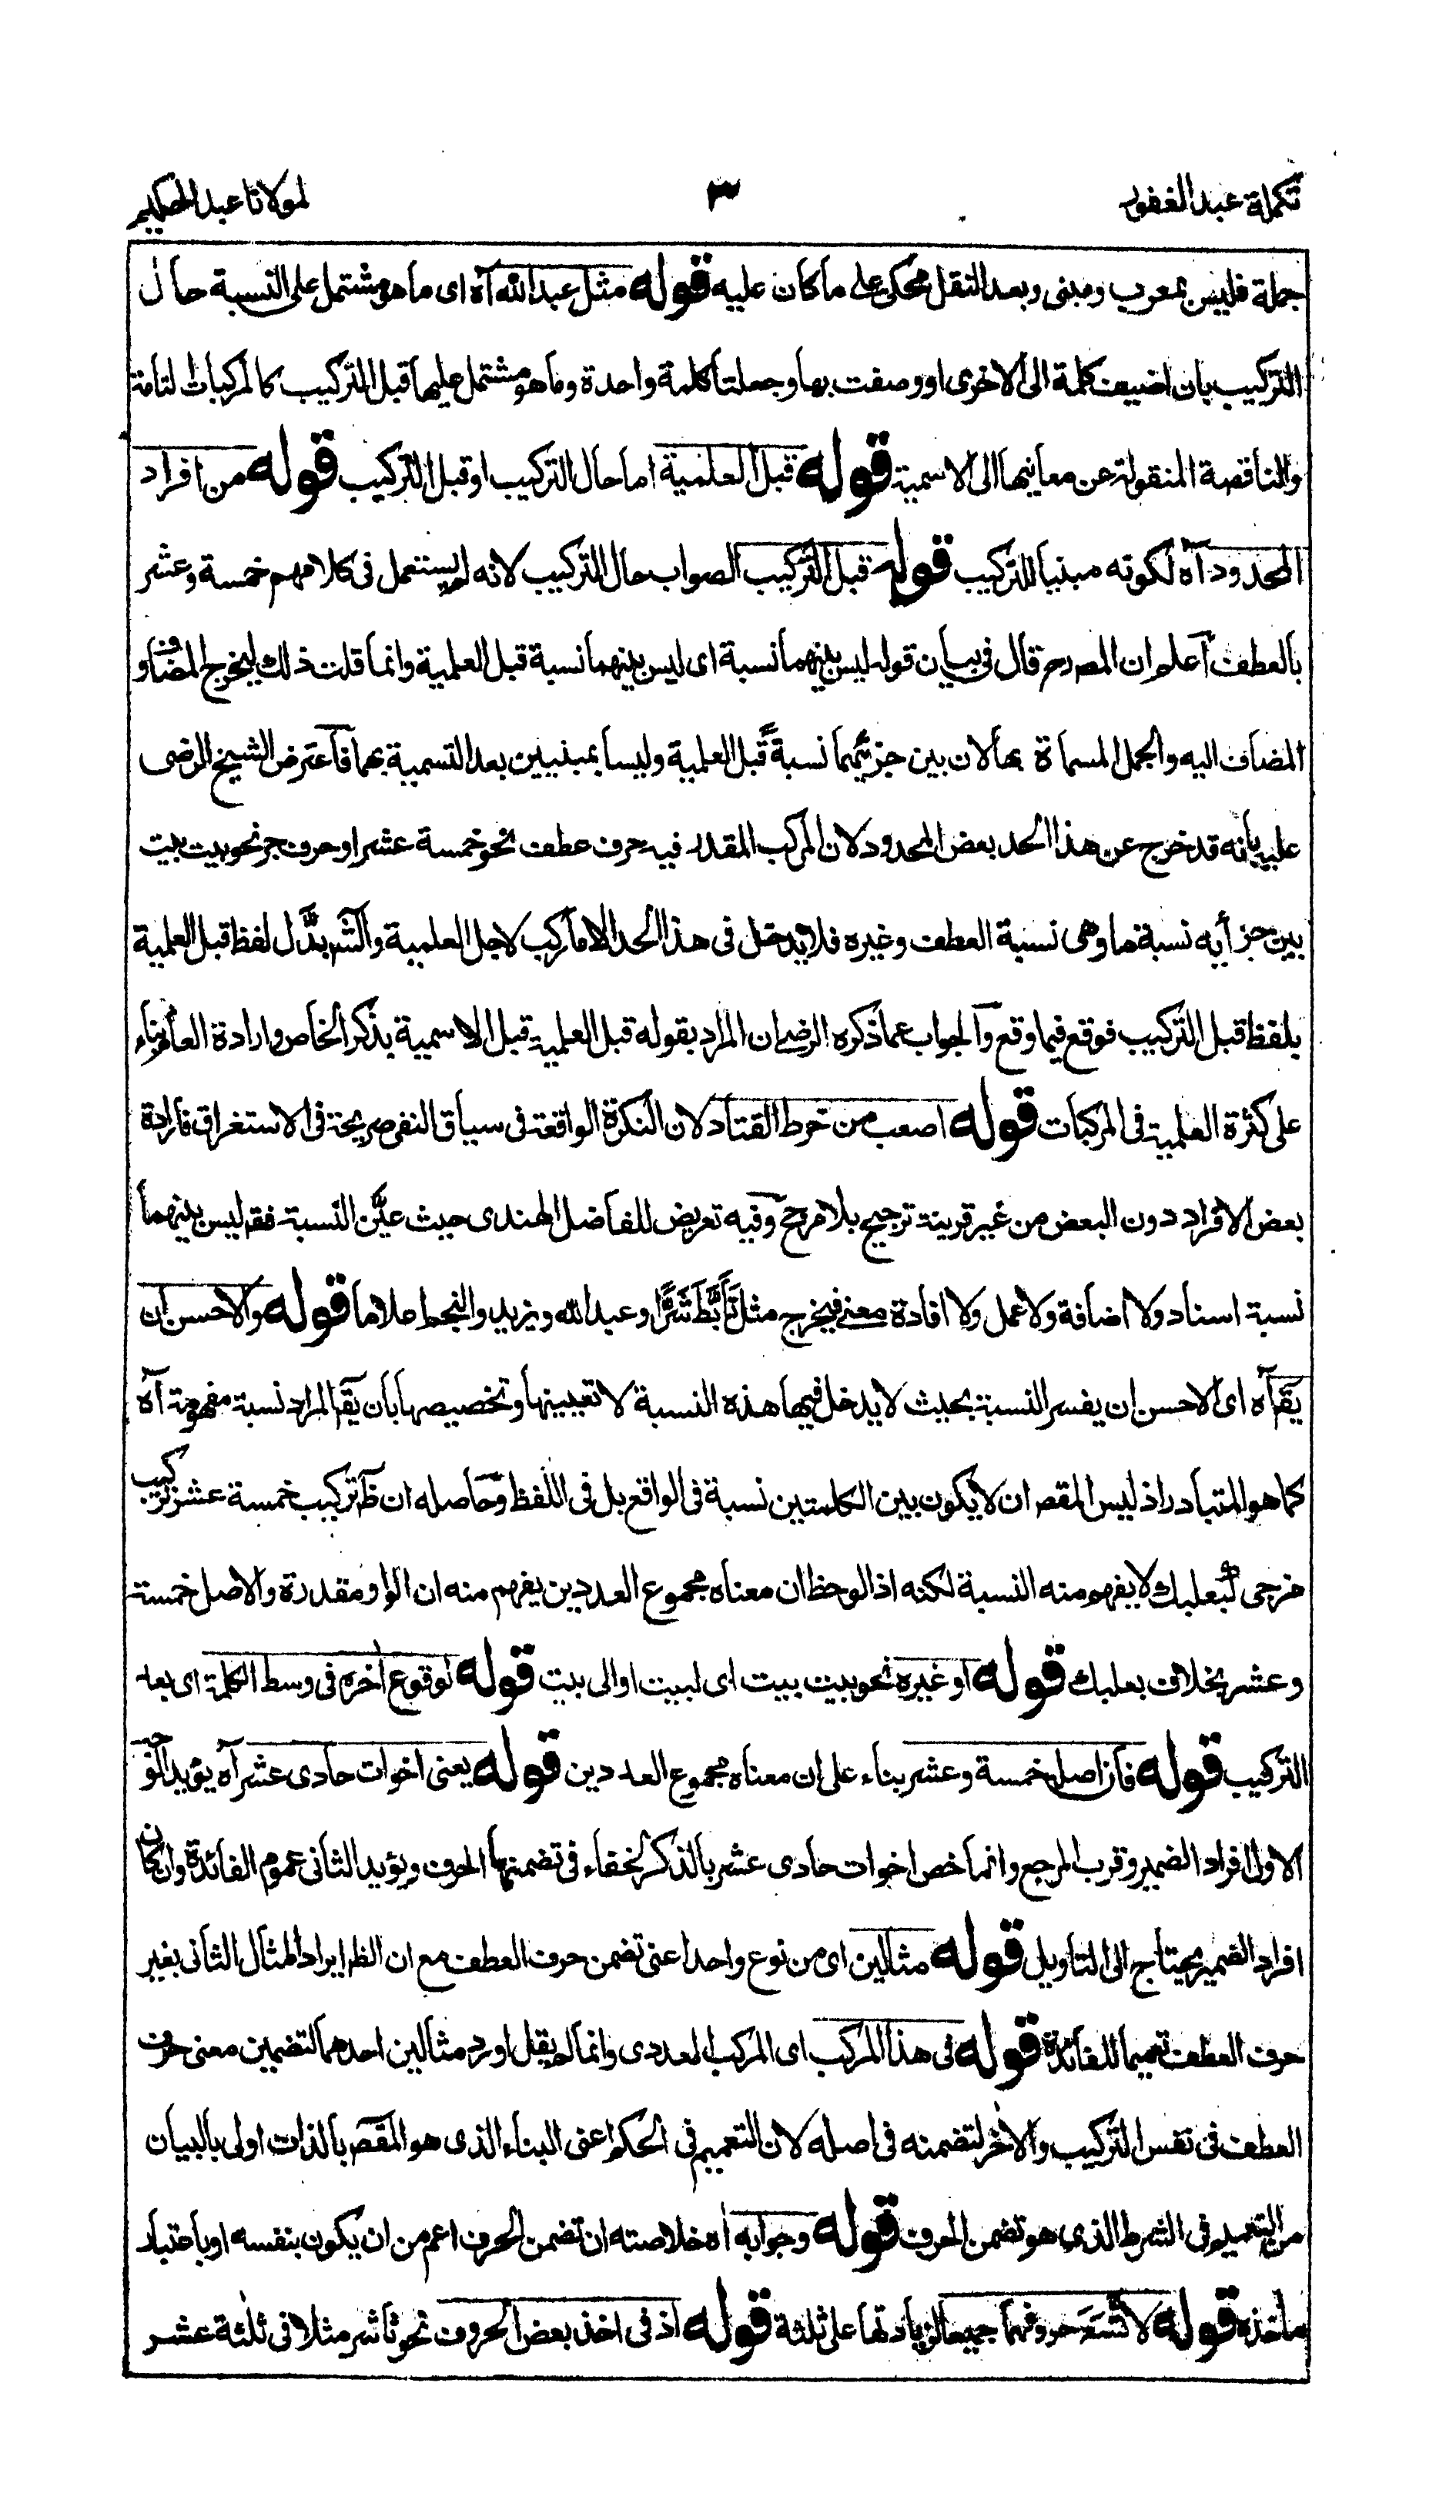 تكملة عبد الغفور ٣ لمولانا عبد الحكيم
جملة فليس بمعرب ومبنى وبعد النقل محكى على ما كان عليه قوله مثل عبد الله آه اى ما هو مشتمل على النسبة حال
التركيب بان اضيفت كلمة الى الاخرى او وصفت بها وجعلتا كلمة واحدة وما هو مشتمل عليها قبل التركيب كالمركبات التامة
والناقصة المنقولة عن معانيها الى الاسمية قوله قبل العلمية اما حال التركيب او قبل التركيب قوله من افراد
المحدود آه لكونه مبنيا للتركيب قوله قبل التركيب الصواب حال التركيب لانه لم يستعمل فى كلامهم خمسة وعشر
بالعطف اعلم ان المصـ رح قال فى بيان قوله ليس بينهما نسبة اى ليس بينهما نسبة قبل العلمية وانما قلت ذلك ليخرج المضاف و
المضاف اليه والجمل المسماة بها لان بين جزئيهما نسبة قبل العلمية وليسا بمبنيين بعد التسمية بهما فاعترض الشيخ الرضى
عليه بانه قد خرج عن هذا الحد بعض المحدود لان المركب المقدر فيه حرف عطف نحو خمسة عشر او حرف جر نحو بيت بيت
بين جزأيه نسبة ما وهى نسبة العطف وغيره فلا يدخل فى هذا الحد الا ما ركب لاجل العلمية والشـ بدّل لفظ قبل العلمية
بلفظ قبل التركيب فوقع فيما وقع والجواب عما ذكره الرضى ان المراد بقوله قبل العلمية قبل الاسمية بذكر الخاص وارادة العام بناء
على كثرة العلمية فى المركبات قوله اصعب من خرط القتاد لان النكرة الواقعة فى سياق النفى صريحة فى الاستغراق فارادة
بعض الافراد دون البعض من غير قرينة ترجيح بلا مرجح وفيه تعريض للفاضل الهندى حيث عيّن النسبة فقـ ليس بينهما
نسبة اسناد ولا اضافة ولا عمل ولا افادة معنى فيخرج مثل تَأَبَّطَ شَرًّا وعبد الله ويزيد والنجم اعلاما قوله والاحسن ان
يقـ آه اى الاحسن ان يفسر النسبة بحيث لا يدخل فيها هذه النسبة لا تعيينها وتخصيصها بان يقـ المراد نسبة مفهومة آه
كما هو المتبادر اذ ليس المقصـ ان لا يكون بين الكلمتين نسبة فى الواقع بل فى اللفظ وحاصله ان ظـ تركيب خمسة عشر تركيب
مزجى كبعلبك لا يفهم منه النسبة لكنه اذا لوحظ ان معناه مجموع العددين يفهم منه ان الواو مقدرة والاصل خمسة
وعشر بخلاف بعلبك قوله او غيره نحو بيت بيت اى لبيت او الى بيت قوله لوقوع آخره فى وسط الكلمة اى بعد
التركيب قوله فان اصله خمسة وعشر بناء على ان معناه مجموع العددين قوله يعنى اخوات حادى عشر آه يؤيد التوجيه
الاول افراد الضمير وقرب المرجع وانما خص اخوات حادى عشر بالذكر لخفاء فى تضمنها الحرف ويؤيد الثانى عموم الفائدة وان كان
افراد الضمير يحتاج الى التاويل قوله مثالين اى من نوع واحد اعنى تضمن حرف العطف مع ان الظـ ايراد المثال الثانى بغير
حرف العطف تعميما للفائدة قوله فى هذا المركب اى المركب العددى وانما لم يقل اورد مثالين احدهما لتضمين معنى حرف
العطف فى نفس التركيب والاخر لتضمنه فى اصله لان التعميم فى الحكم اعنى البناء الذى هو المقصـ بالذات اولى بالبيان
من التعميم فى الشرط الذى هو تضمن الحرف قوله وجوابه آه خلاصته ان تضمن الحرف اعم من ان يكون بنفسه او باعتبار
ماخذه قوله حروفهما جميعا لزيادتها على ثلثة قوله اذ فى اخذ بعض الحروف نحو ثاشر مثلا فى ثلثة عشر